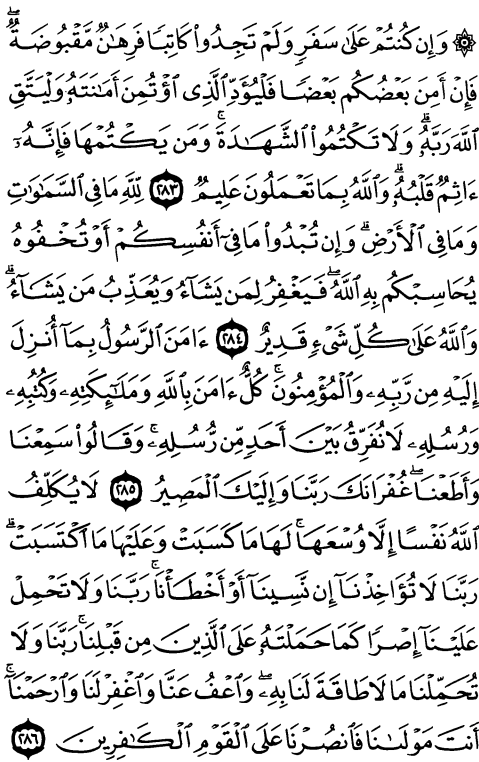 ۞ وَإِن كُنتُمۡ عَلَىٰ سَفَرٖ وَلَمۡ تَجِدُواْ كَاتِبٗا فَرِهَٰنٞ مَّقۡبُوضَةٞۖ
فَإِنۡ أَمِنَ بَعۡضُكُم بَعۡضٗا فَلۡيُؤَدِّ ٱلَّذِي ٱؤۡتُمِنَ أَمَٰنَتَهُۥ وَلۡيَتَّقِ
ٱللَّهَ رَبَّهُۥۗ وَلَا تَكۡتُمُواْ ٱلشَّهَٰدَةَۚ وَمَن يَكۡتُمۡهَا فَإِنَّهُۥٓ
ءَاثِمٞ قَلۡبُهُۥۗ وَٱللَّهُ بِمَا تَعۡمَلُونَ عَلِيمٞ ٢٨٣ لِّلَّهِ مَا فِي ٱلسَّمَٰوَٰتِ
وَمَا فِي ٱلۡأَرۡضِۗ وَإِن تُبۡدُواْ مَا فِيٓ أَنفُسِكُمۡ أَوۡ تُخۡفُوهُ
يُحَاسِبۡكُم بِهِ ٱللَّهُۖ فَيَغۡفِرُ لِمَن يَشَآءُ وَيُعَذِّبُ مَن يَشَآءُۗ
وَٱللَّهُ عَلَىٰ كُلِّ شَيۡءٖ قَدِيرٌ ٢٨٤ ءَامَنَ ٱلرَّسُولُ بِمَآ أُنزِلَ
إِلَيۡهِ مِن رَّبِّهِۦ وَٱلۡمُؤۡمِنُونَۚ كُلٌّ ءَامَنَ بِٱللَّهِ وَمَلَٰٓئِكَتِهِۦ وَكُتُبِهِۦ
وَرُسُلِهِۦ لَا نُفَرِّقُ بَيۡنَ أَحَدٖ مِّن رُّسُلِهِۦۚ وَقَالُواْ سَمِعۡنَا
وَأَطَعۡنَاۖ غُفۡرَانَكَ رَبَّنَا وَإِلَيۡكَ ٱلۡمَصِيرُ ٢٨٥ لَا يُكَلِّفُ
ٱللَّهُ نَفۡسًا إِلَّا وُسۡعَهَاۚ لَهَا مَا كَسَبَتۡ وَعَلَيۡهَا مَا ٱكۡتَسَبَتۡۗ
رَبَّنَا لَا تُؤَاخِذۡنَآ إِن نَّسِينَآ أَوۡ أَخۡطَأۡنَاۚ رَبَّنَا وَلَا تَحۡمِلۡ
عَلَيۡنَآ إِصۡرٗا كَمَا حَمَلۡتَهُۥ عَلَى ٱلَّذِينَ مِن قَبۡلِنَاۚ رَبَّنَا وَلَا
تُحَمِّلۡنَا مَا لَا طَاقَةَ لَنَا بِهِۦۖ وَٱعۡفُ عَنَّا وَٱغۡفِرۡ لَنَا وَٱرۡحَمۡنَآۚ
أَنتَ مَوۡلَىٰنَا فَٱنصُرۡنَا عَلَى ٱلۡقَوۡمِ ٱلۡكَٰفِرِينَ ٢٨٦